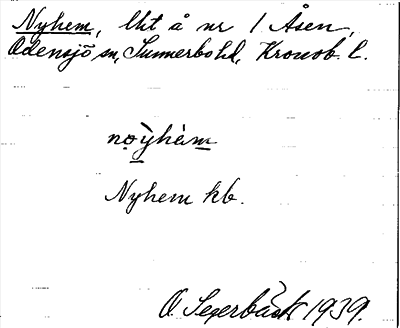 Nyhem, lht å nr 1 Åsen,
Odensjö sn, Sunnerbo hd, Kronob. l.
nọ̀yhèm
Nyhem kb.
O. Segerbäck 1939.